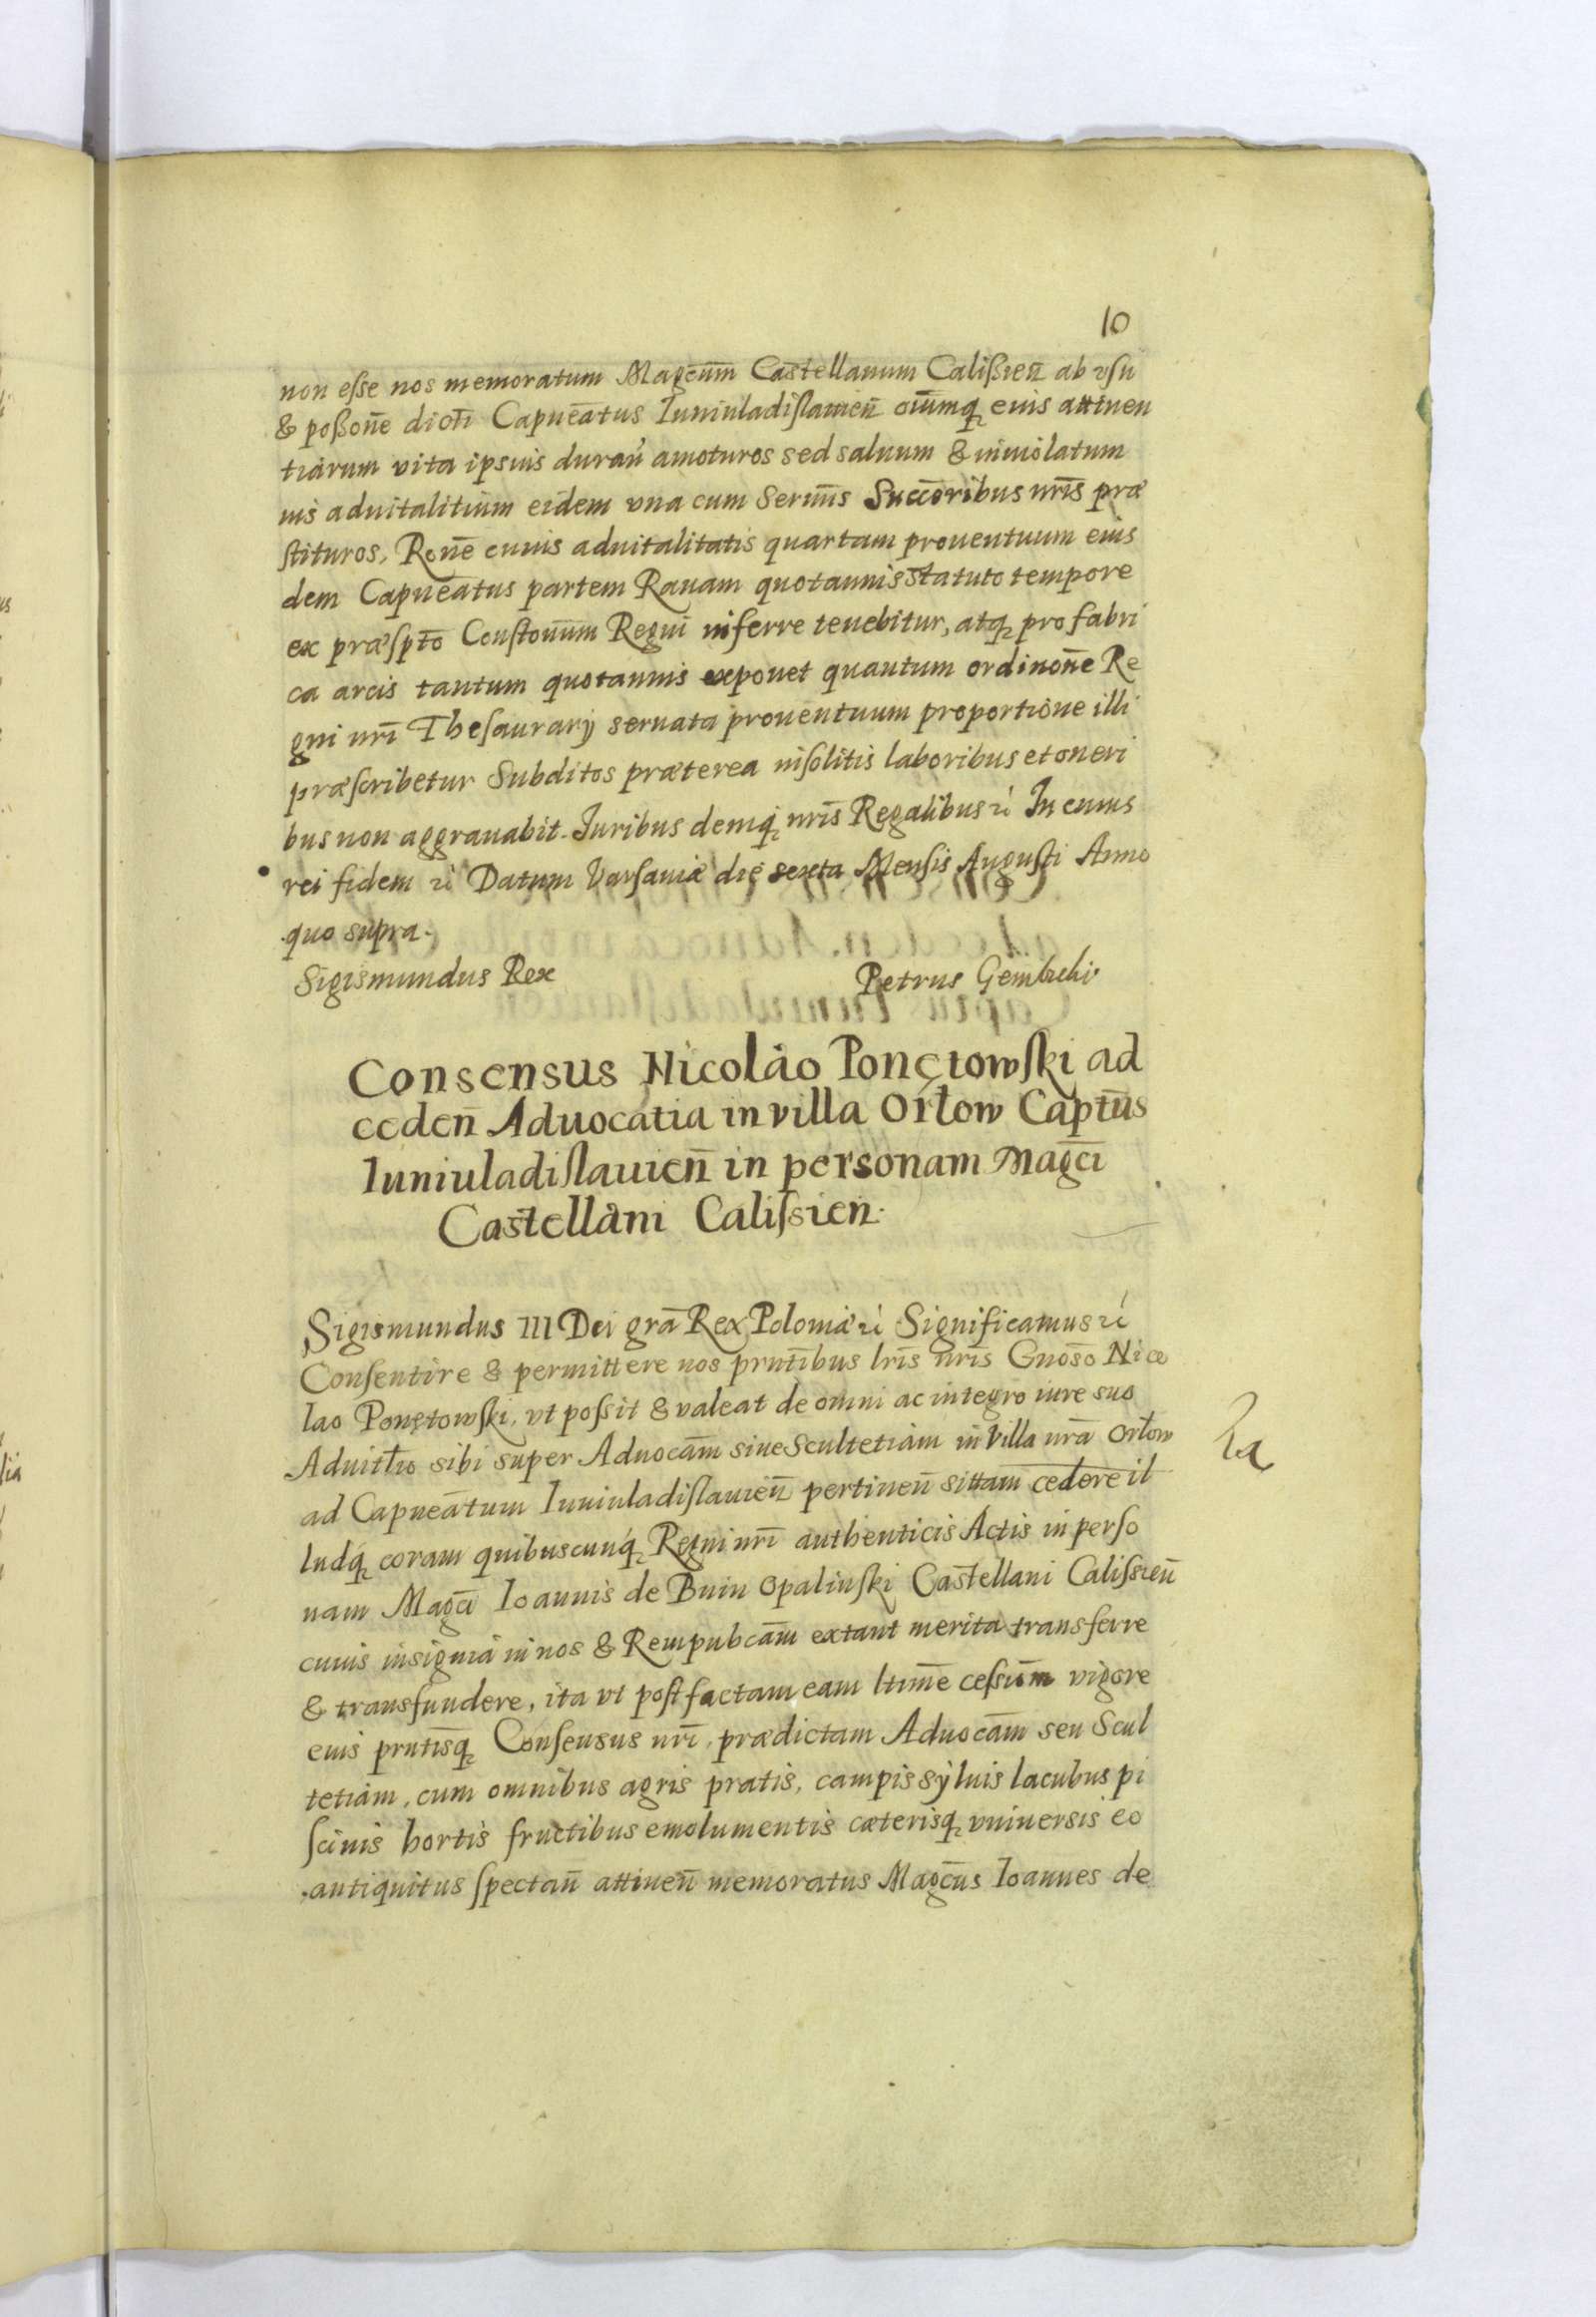 10
non esse nos memoratum Magcum̄ Castellanum Calißien̄ ab vsu
& poßon̄e dicti Capnea̅tus Iuniuladislauien̄ oiūmq; eius attinen
tiarum vita ipsuis duran̄ amoturos sed saluum & inuiolatum
ius aduitalitium eidem vna cum Sermīs Succoribus nr̄is præ
stituros, Ron̄e cuius aduitalitatis quartam prouentuum eius
dem Capnea̅tus partem Rauam quotannis statuto tempore
ex præsp̄to Constonum̄ Regni inferre tenebitur, atq; pro fabri
ca arcis tantum quotannis exponet quantum ordinon̄e Re
gni nr̄i Thesaurarij seruata prouentuum proportione illi
præscribetur Subditos præterea insolitis laboribus et oneri
bus non aggrauabit. Iuribus demq; nr̄is Regalibus &c In cuius
rei fidem &c Datum Varsauiæ die sexta Mensis Augusti Anno
quo supra.
Sigismundus Rex Petrus Gembicki
Consensus Nicolao Ponętowski ad
ceden̄ Aduocatia in villa Orłow Captūs
Iuniuladislauien̄ in personam Magc̄i
Castellani Calissien.
Sigismundus III Dei grā Rex Poloniæ &c Significamus &c
Consentire & permittere nos prnt̄ibus lr̄is nr̄is Gnoso Nico
lao Ponętowski, vt possit & valeat de omni ac integro iure suo
Aduitl̄io sibi super Aduocām siue Scultetiam in Villa nr̄a Orłow
ad Capnea̅tum Iuniuladislauien̄ pertinen̄ sittam cedere il
ludq; coram quibuscunq; Regni nr̄i authenticis Actis in perso
nam Magc̄i Ioannis de Bnin Opalinski Castellani Calissien̄
cuius insignia in nos & Rempubcām extant merita transferre
& transfundere, ita vt post factam eam ltim̄e cession̄m vigore
eius prntisq; Consensus nr̄i, prædictam Aduocām seu Scul
tetiam, cum omnibus agris pratis, campis syluis lacubus pi
scinis hortis fructibus emolumentis cæterisq; vniuersis eo
antiquitus spectan̄ attinen̄ memoratus Magcūs Ioannes de